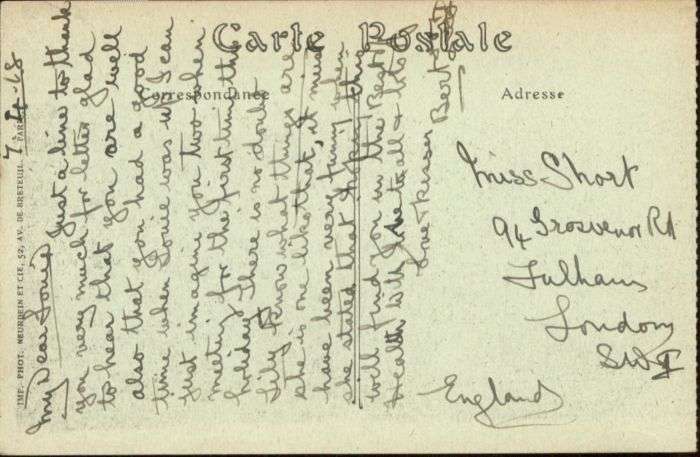 Carte Postale
Correspondance
Adresse
IMP. PHOT. NEURDEIN ET CIE, 52, AV. DE BRETEUIL. PARIS
7-4-18
My Dear Louie Just a line to thank
you very much for letter glad
to hear that you are well
also that you had a good
time when Louie was up I can
just imagine you two when
meeting for the first time this
holiday There is no doubt
Lily know what things are
she is one like that, it must
have been very funny when
she stated that I hope this
will find you in the Best of
Health with love to all &
love & kisses Bert
Miss Short
94 Grosvenor Rd
Fulham
London
SW
England